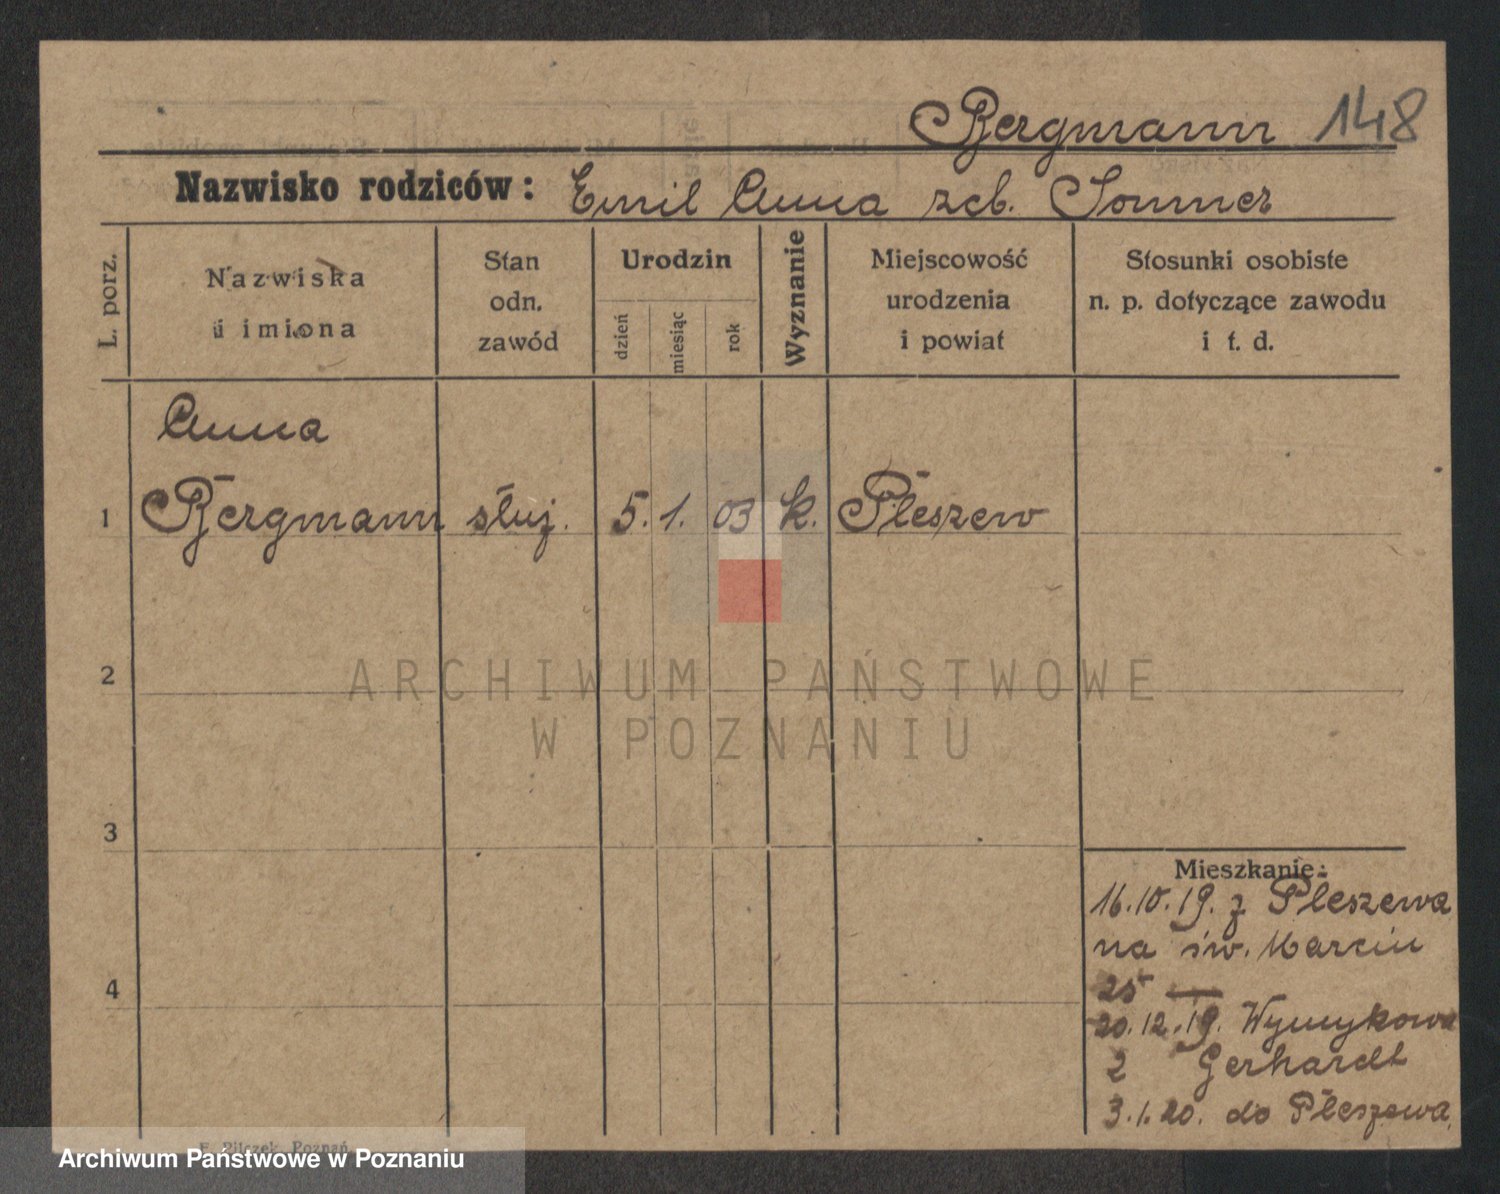 Bergmann 148
Nazwisko rodziców: Emil Anna zeb. Sommer
L. porz.
Nazwiska
i imiona
Stan
odn.
zawód
Urodzin
dzień
miesiąc
rok
Wyznanie
Miejscowość
urodzenia
i powiat
Stosunki osobiste
n. p. dotyczące zawodu
i t. d.
Anna
1 Bergmann służ. 5. 1. 03 k. Pleszew
2
ARCHIWUM PAŃSTWOWE
W POZNANIU
3
4
Mieszkanie:
16.10.19. z Pleszewa
na św. Marcin
25 —
20.12.19. Wymykowa
2 Gerhardt
3.1.20. do Pleszewa.
F. Pilczek, Poznań
Archiwum Państwowe w Poznaniu